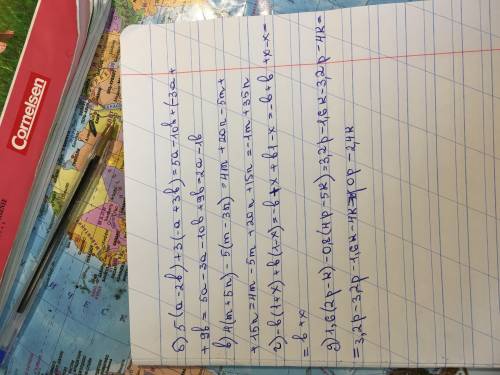 Cornelsen
б) 5(a-2b)+3(-a+3b)=5a-10b+(-3a+
+9b= 5a-3a-10b+9b=2a-1b
в) 4(m+5n)-5(m-3n)=4m+20n-5m+
+15n=4m-5m+20n+15n=-1m+35n
г) -b(1+x)+b(1-x)=-b+x+b1-x=-b+b+x-x=
=b+x
д) 1,6(2p-k)-0,8(4p-5k)=3,2p-1,6k-3,2p-4k=
=3,2p-3,2p-1,6k-4k=0p-2,4k